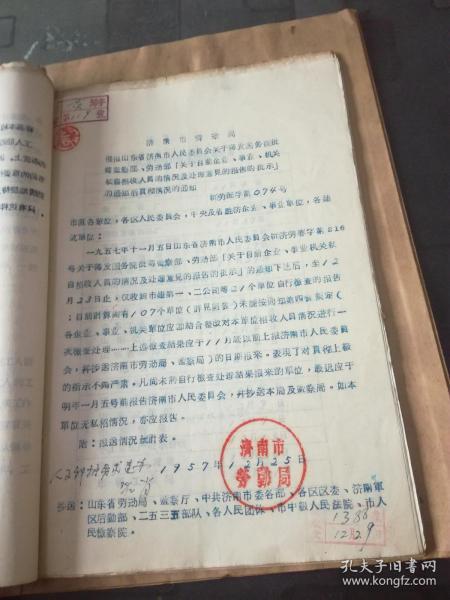 济南市劳动局
催报山东省济南市人民委员会关于转发国务院批
转监察部、劳动部「关于目前企业、事业、机关
私自招收人员的情况及处理意见的报告的批示」
的通知后贯彻情况的通知
济劳字第074号
市直各单位,各区人民委员会,中央及省驻济企业、事业单位,各建
筑单位:
一九五七年十一月五日山东省济南市人民委员会济劳办字第816
号关于转发国务院批转监察部、劳动部「关于目前企业、事业机关私
自招收人员的情况及处理意见的报告的批示」的通知下达后,至12
月23日止,仅收到市建第一、二公司等21个单位自行检查的报告
;目前计算尚有107个单位(详见附表)未能按通知第四项规定(
各企业、事业、机关单位应即结合整改对本单位招收人员情况进行一
次检查处理……上述检查结果应于11月底以前上报济南市人民委员
会,并抄送济南市劳动局、监察局)的日期报来。表现了对贯彻上级
的指示不够严肃。凡尚未将自行检查处理结果报来的单位,最迟应于
明年一月五号前报告济南市人民委员会,并抄送本局及监察局。如本
单位无私招情况,亦应报告。
附:报送情况统计表。
1957年12月25日
济南市
劳动局
抄送:山东省劳动局、监察厅、中共济南市委各部、各区区委、济南军
区后勤部、二五三五部队、各人民团体、市中级人民法院、市人
民检察院。
1388
12 29
孔夫子旧书网